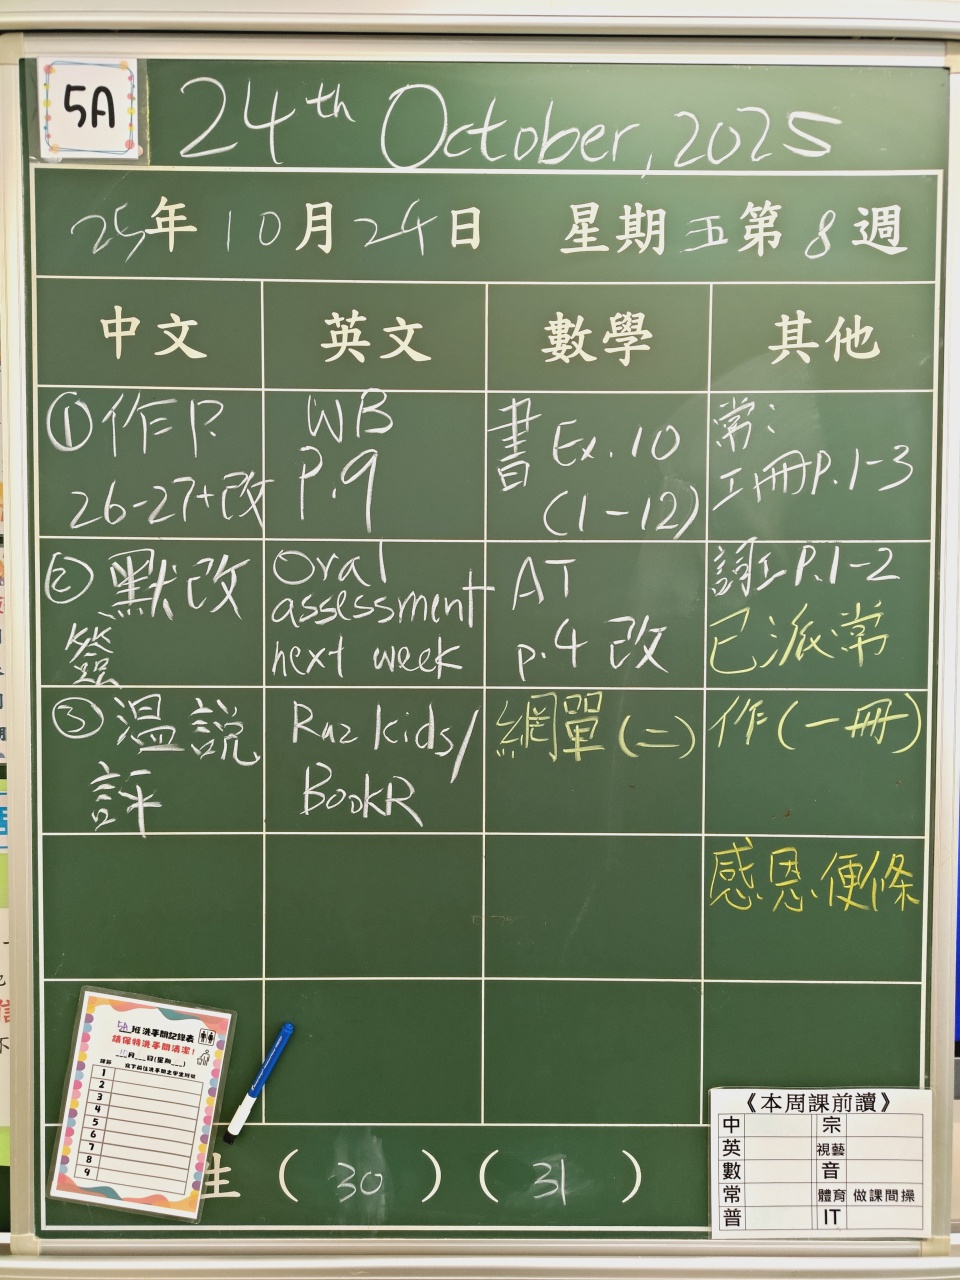 5A
24th October, 2025
25年10月24日 星期五第8週
中文 英文 數學 其他
①作P.
26-27+改
WB
P.9
書 Ex.10
(1-12)
常:
工冊P.1-3
②默改
簽
Oral
assessment
next week
AT
p.4 改
詞工P.1-2
已派常
③溫說
評
Raz kids/
BookR
網單(二)
作(一冊)
感恩便條
5A班洗手間記錄表
請保持洗手間清潔!
月 日(星期 )
1
2
3
4
5
6
7
8
9
生 (30) (31)
《本周課前讀》
中 宗
英 視藝
數 音
常 體育 做課間操
普 IT